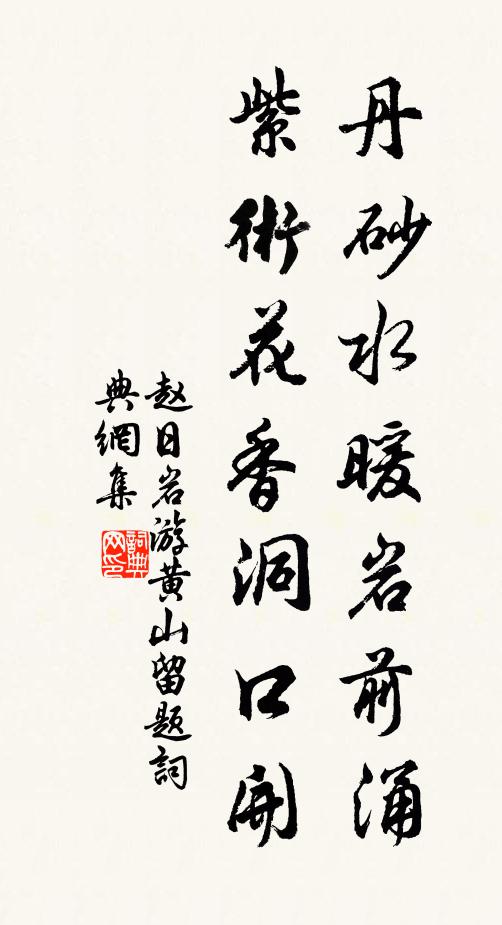 丹砂水暖岩前涌
紫術花香洞口開
赵日岩游黄山留题詞
典網集
詞典网印